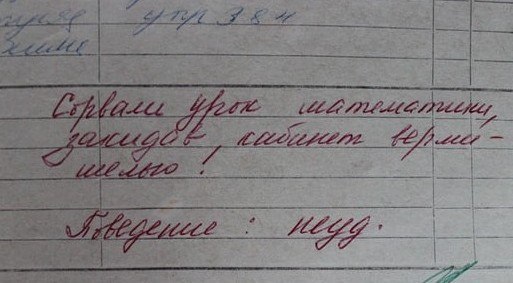 упр 38 н
Сорвали урок математики,
закидав, кабинет верми-
шелью!
Поведение: неуд.